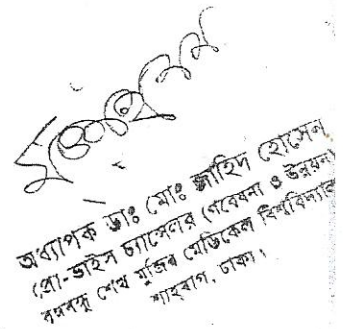 অধ্যাপক ডাঃ মোঃ জাহিদ হোসেন
(প্রো-ভাইস চ্যান্সেলর (গবেষনা ও উন্নয়ন)
বঙ্গবন্ধু শেখ মুজিব মেডিকেল বিশ্ববিদ্যালয়
শাহবাগ, ঢাকা।